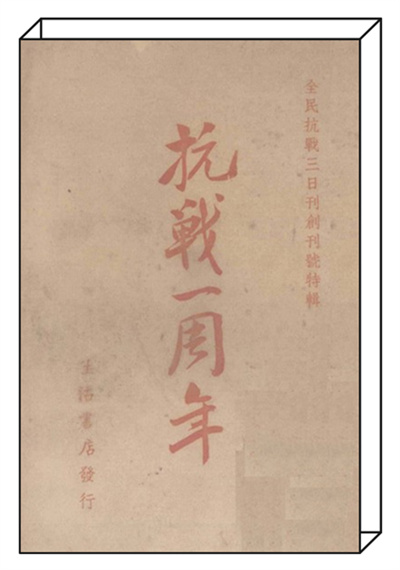 全民抗戰三日刊創刊號特輯
抗戰一周年
生活書店發行